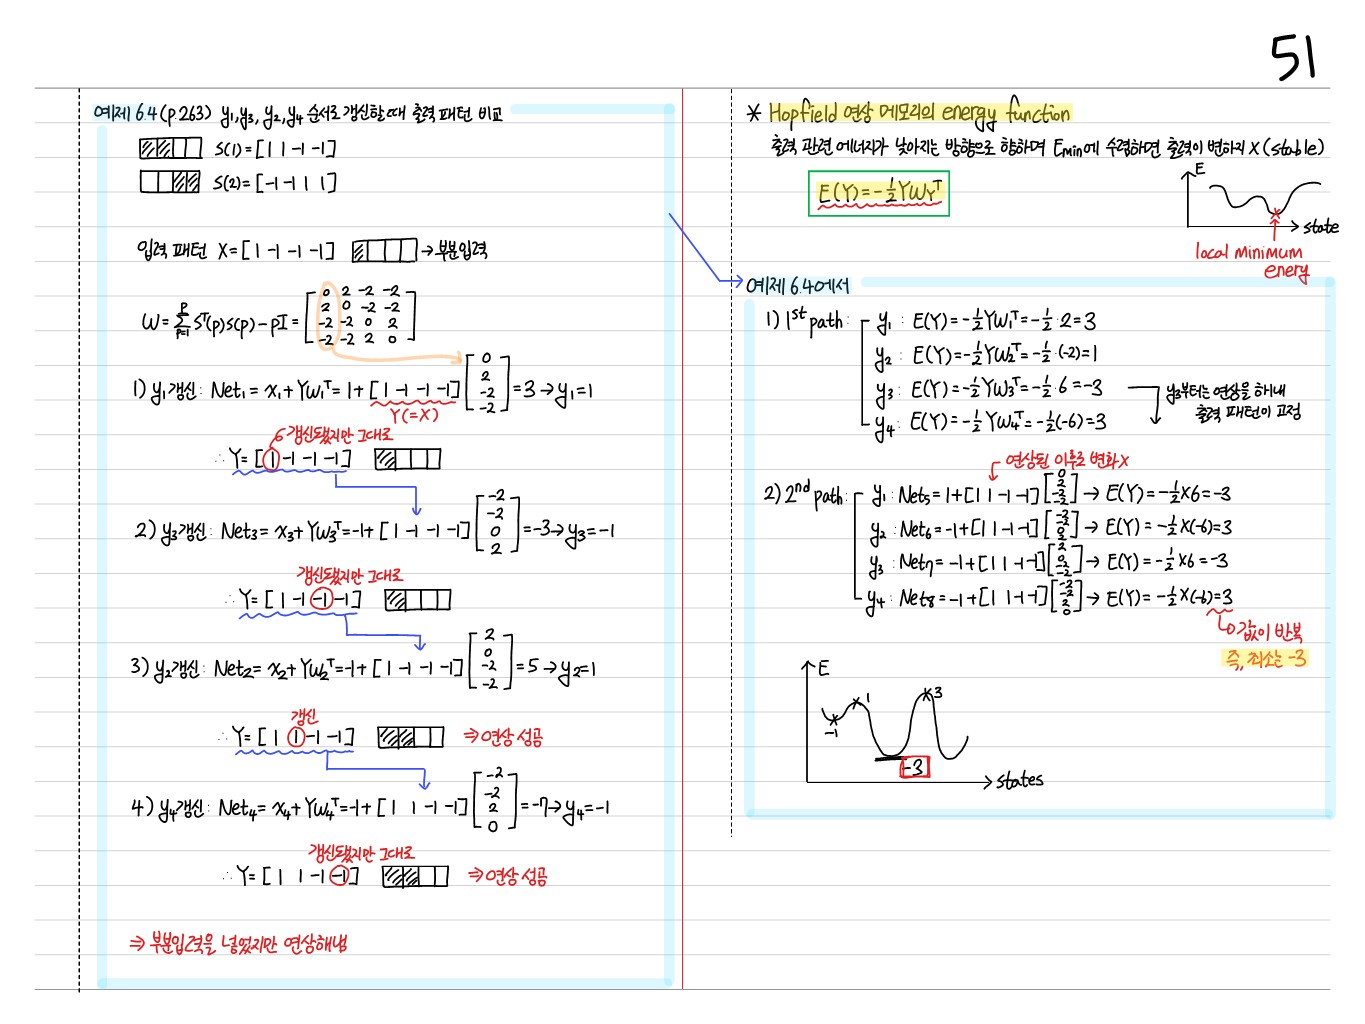 51
예제 6.4 (p.263) y₁, y₃, y₂, y₄ 순서로 갱신할 때 출력 패턴 비교
S(1) = [1 1 -1 -1]
S(2) = [-1 -1 1 1]
입력 패턴 X = [1 -1 -1 -1] → 부분입력
W = Σ_{p=1}^{P} Sᵀ(p)S(p) - PI = [0 2 -2 -2
2 0 -2 -2
-2 -2 0 2
-2 -2 2 0]
1) y₁갱신: Net₁ = x₁ + Yw₁ᵀ = 1 + [1 -1 -1 -1] [0 2 -2 -2] = 3 → y₁ = 1
Y(=X)
갱신됐지만 그대로
∴ Y = [1 -1 -1 -1]
2) y₃갱신: Net₃ = x₃ + Yw₃ᵀ = -1 + [1 -1 -1 -1] [-2 -2 0 2] = -3 → y₃ = -1
갱신됐지만 그대로
∴ Y = [1 -1 -1 -1]
3) y₂갱신: Net₂ = x₂ + Yw₂ᵀ = -1 + [1 -1 -1 -1] [2 0 -2 -2] = 5 → y₂ = 1
갱신
∴ Y = [1 1 -1 -1] ⇒ 연상 성공
4) y₄갱신: Net₄ = x₄ + Yw₄ᵀ = -1 + [1 1 -1 -1] [-2 -2 2 0] = -7 → y₄ = -1
갱신됐지만 그대로
∴ Y = [1 1 -1 -1] ⇒ 연상 성공
⇒ 부분입력을 넣었지만 연상해냄
* Hopfield 연상 메모리의 energy function
출력 관련 에너지가 낮아지는 방향으로 향하며 Emin에 수렴하면 출력이 변하지 X (stable)
E(Y) = -½YWYᵀ
E
state
local minimum
energy
예제 6.4에서
1) 1st path: y₁ : E(Y) = -½Yw₁ᵀ = -½·2 = 3
y₂ : E(Y) = -½Yw₂ᵀ = -½·(-2) = 1
y₃ : E(Y) = -½Yw₃ᵀ = -½·6 = -3
y₄ : E(Y) = -½Yw₄ᵀ = -½(-6) = 3
y₃부터는 연상을 해내
출력 패턴이 고정
연상된 이후로 변화 X
2) 2nd path: y₁ : Net₅ = 1 + [1 1 -1 -1] [0 2 -2 -2] → E(Y) = -½×6 = -3
y₂ : Net₆ = -1 + [1 1 -1 -1] → E(Y) = -½×(-6) = 3
y₃ : Net₇ = -1 + [1 1 -1 -1] → E(Y) = -½×6 = -3
y₄ : Net₈ = -1 + [1 1 -1 -1] [-2 -2 2 0] → E(Y) = -½×(-6) = 3
값이 반복
즉, 최소는 -3
E
-1
1
3
-3
states